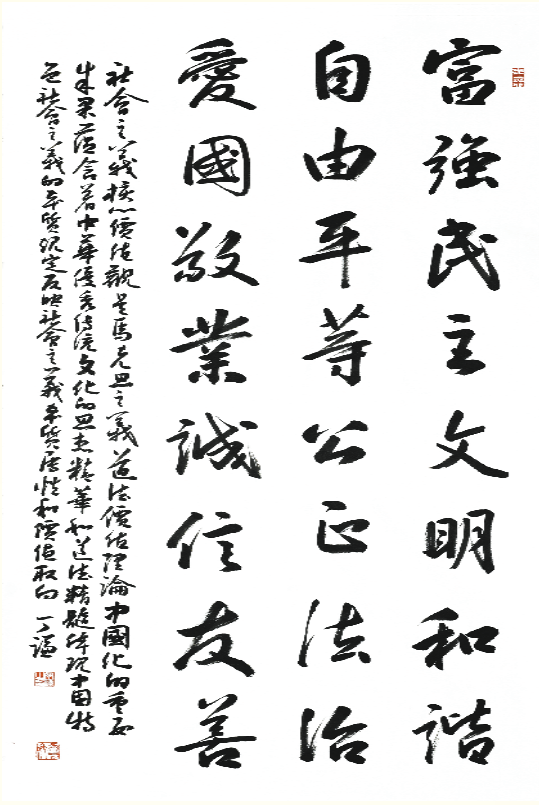 富強民主文明和諧
自由平等公正法治
愛國敬業誠信友善
社會主義核心價值觀是馬克思主義道法價值理論中國化的重要
成果蘊含着中華優秀傳統文化的思想精華和道法精髓体現中国特
色社會主義的本質規定反映社會主義本質屬性和價值取向 丁謚